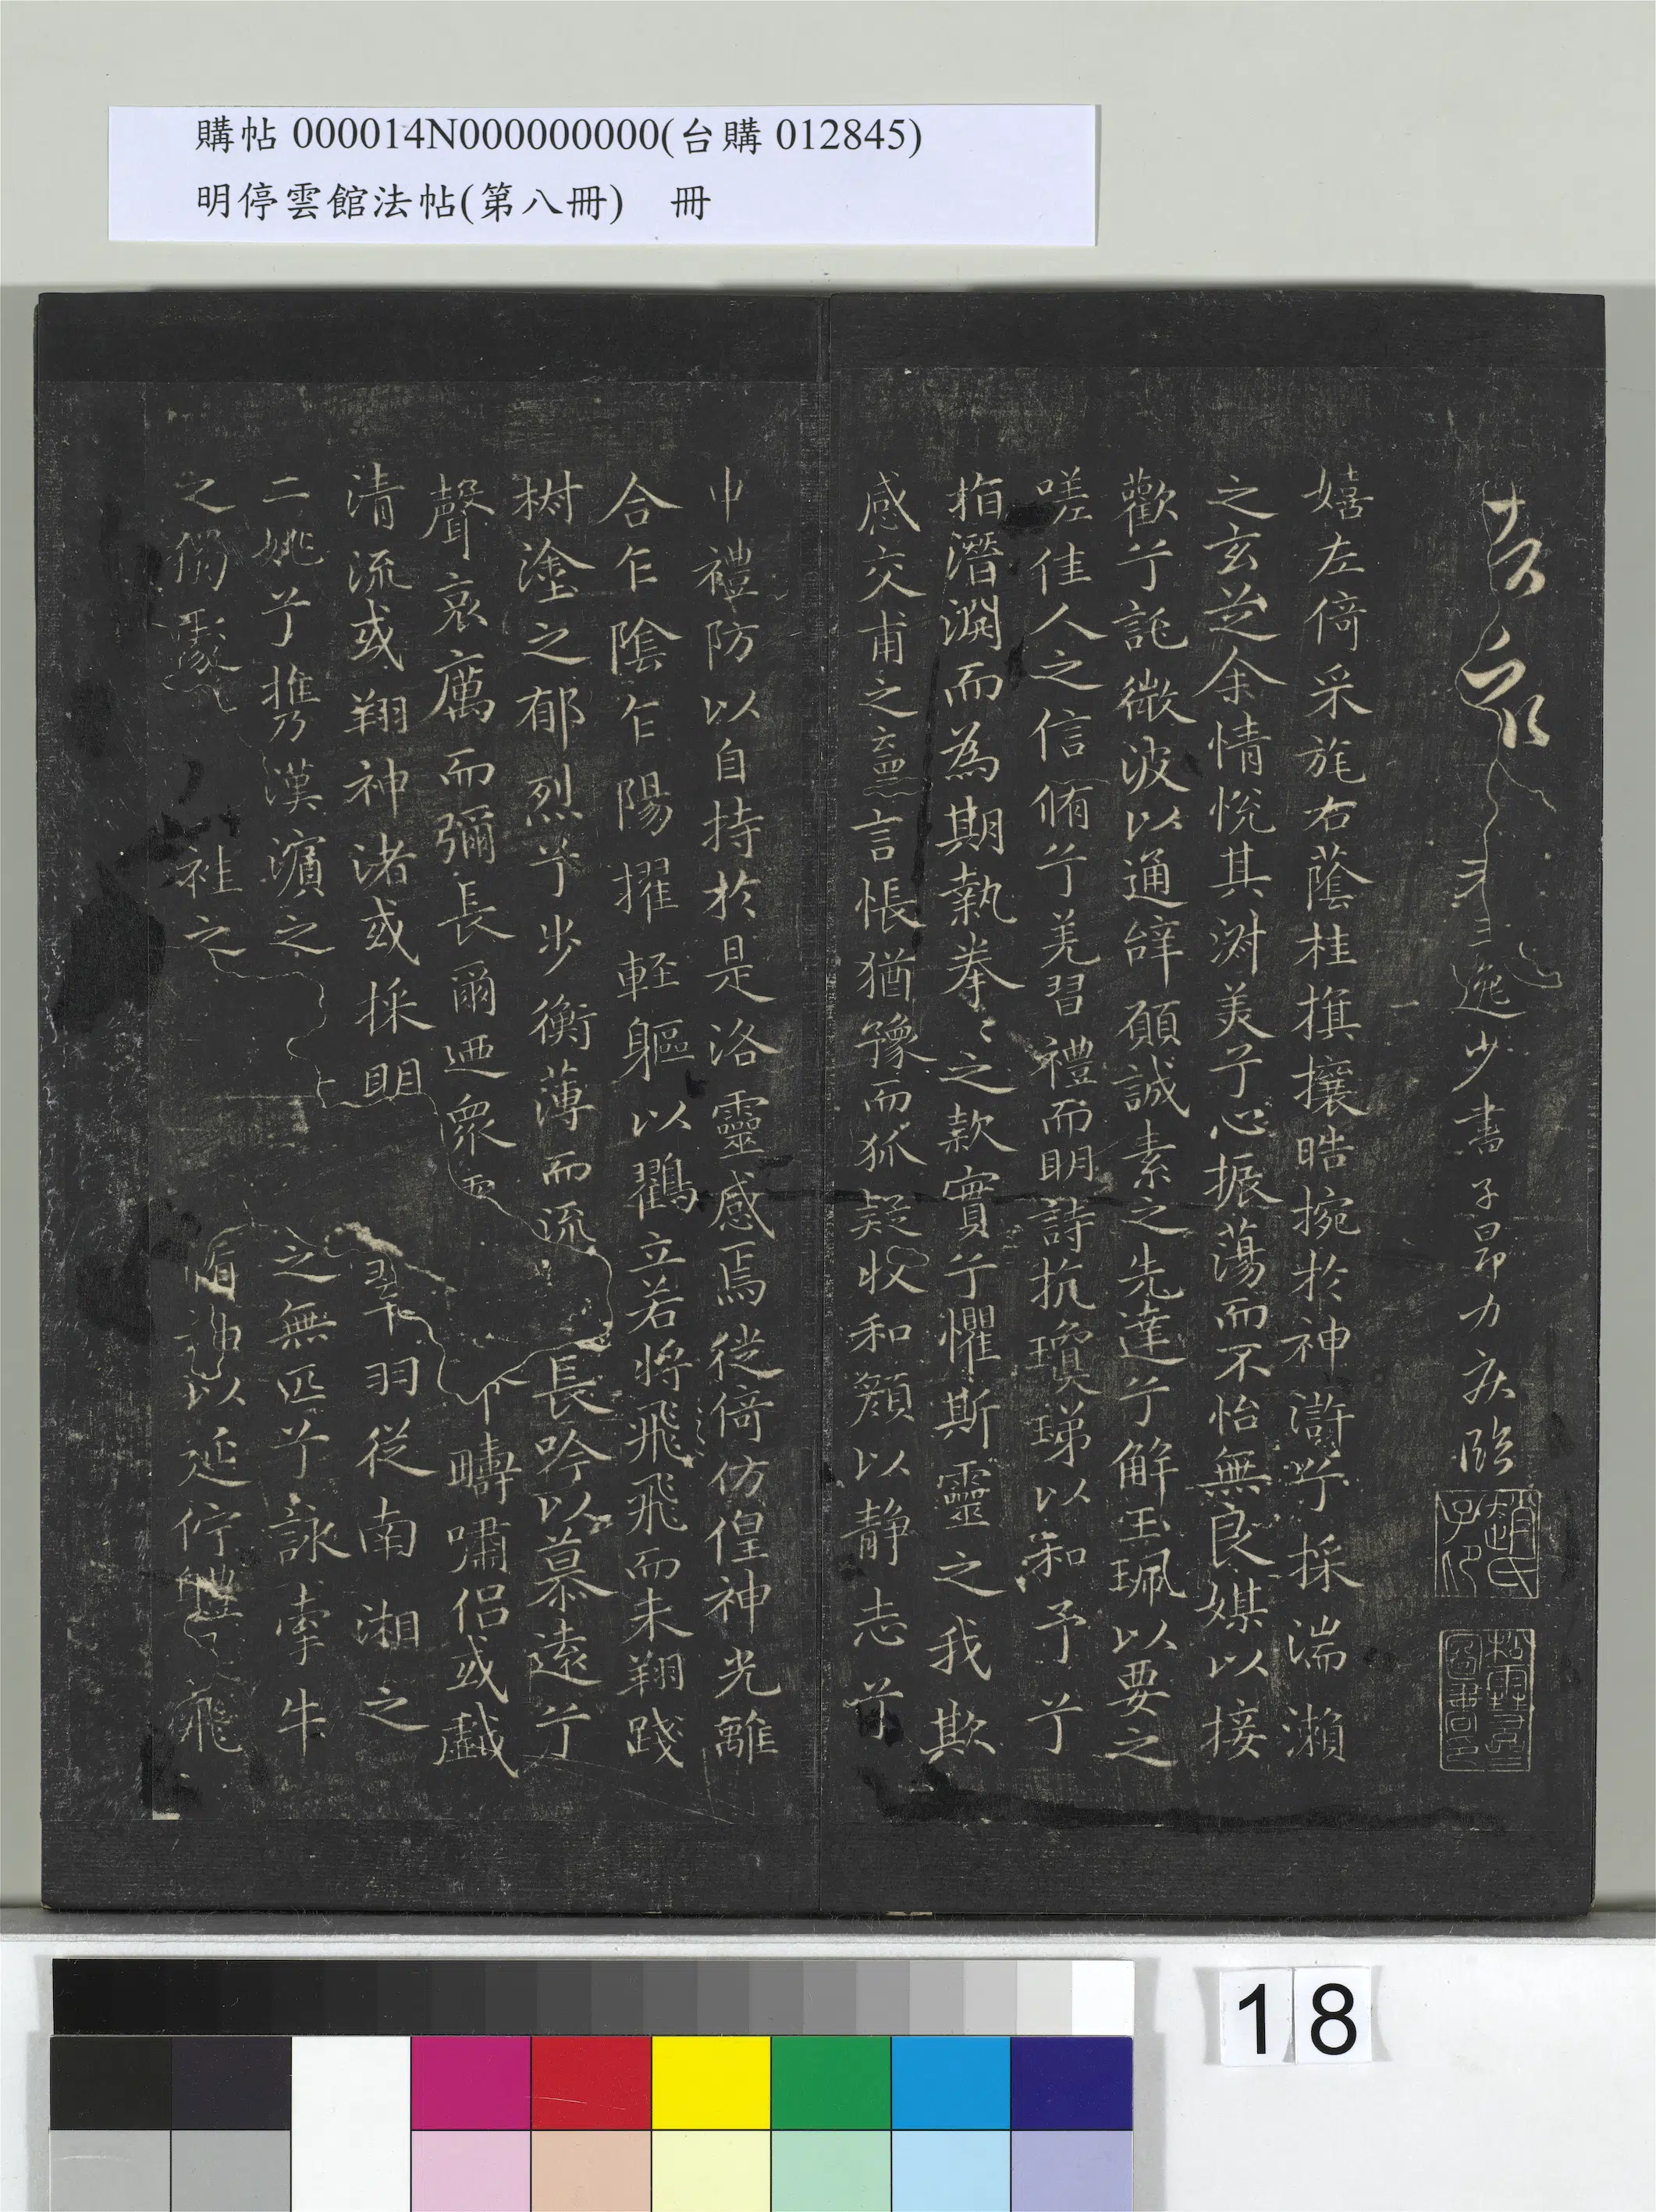 購帖 000014N000000000(台購 012845)
明停雲館法帖(第八冊) 冊
逸少書子昂力疾臨
趙氏子印
嬉左倚采旄右蔭桂旗攘晧捥於神滸兮採湍瀨
之玄芝余情悅其淑美兮心振蕩而不怡無良媒以接
歡兮託微波以通辝願誠素之先達兮解玉珮以要之
嗟佳人之信脩兮羌習禮而明詩抗瓊珶以和予兮
指潛淵而為期執拳〻之款實兮懼斯靈之我欺
感交甫之棄言悵猶豫而狐疑收和顏以静志
申禮防以自持於是洛靈感焉徙倚仿偟神光離
合乍陰乍陽擢輕軀以鶴立若將飛飛而未翔踐
樹塗之郁烈兮步衡薄而流 長吟以慕遠兮
聲哀厲而彌長爾迺衆 疇嘯侶或戲
清流或翔神渚或採明 羽從南湘之
二姚兮携漢濱之 之無匹兮詠牽牛
之獨 袿之 以延佇 飛
18